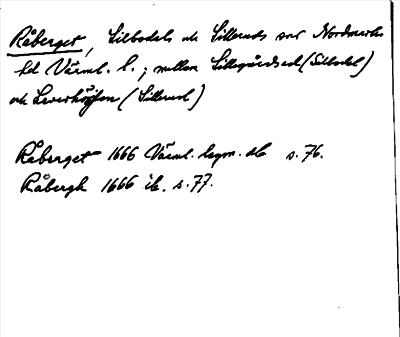 Råberget, Silbodals ok Silleruds snr Nordmarks
hd Värml. l.; mellan Lillegårdssed (Silbodal)
ok Leverhöjen (Sillerud)
Råberget 1666 Värml. lagm. db s. 76.
Råbergh 1666 ib. s. 77.